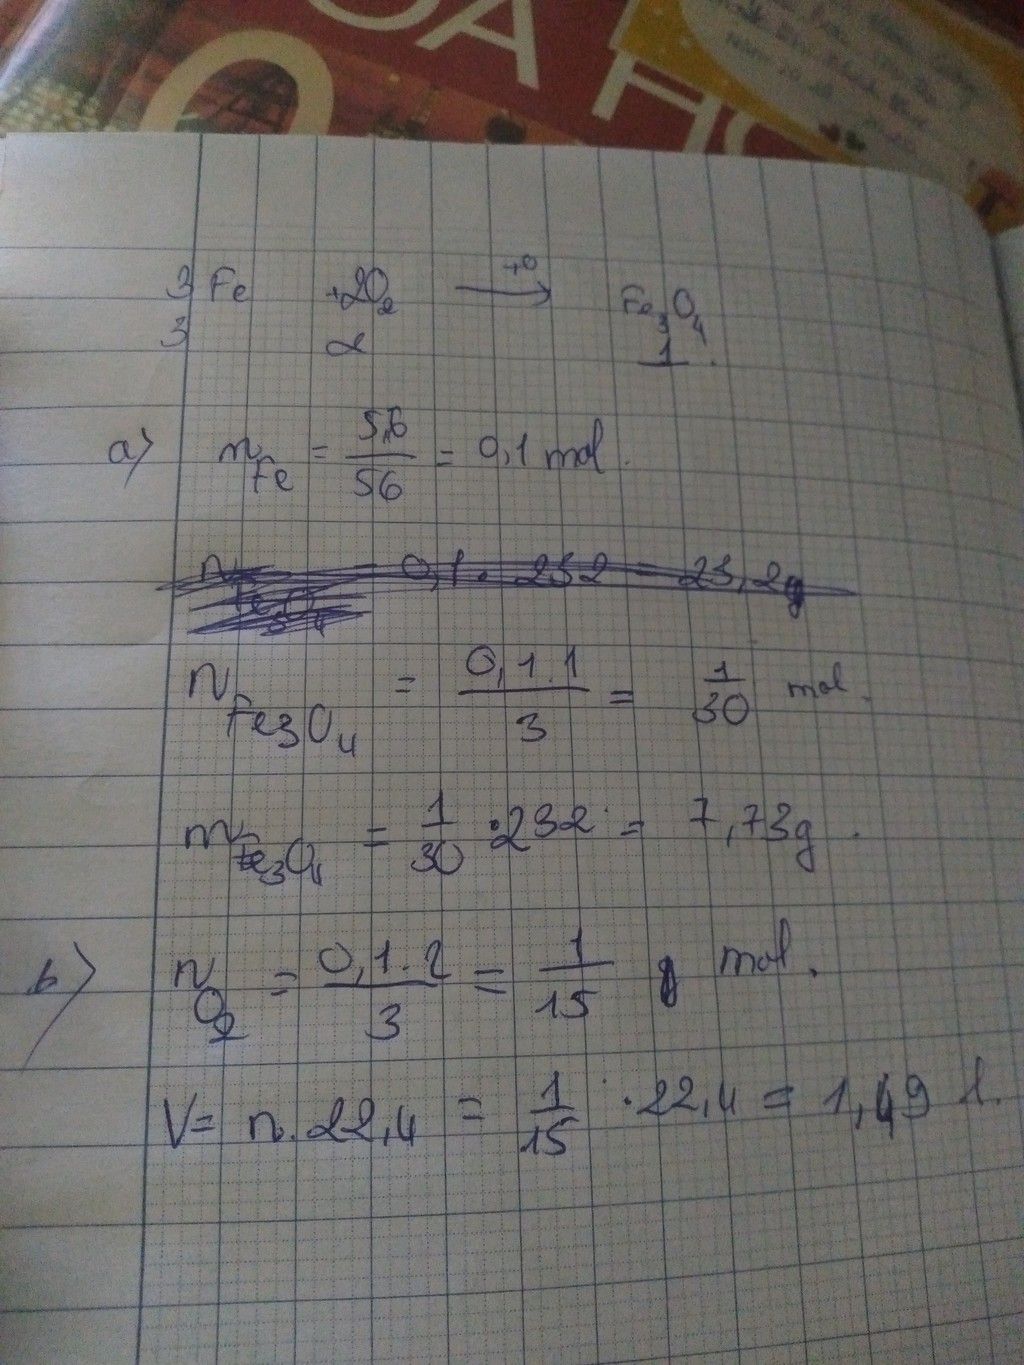 OA HO
3 Fe + 2O2 →(t°) Fe3O4
3 2 1.
a) nFe = 5,6/56 = 0,1 mol.
0,1 . 232 = 23,2g
nFe3O4 = 0,1.1/3 = 1/30 mol.
mFe3O4 = 1/30 . 232 = 7,73g.
b) nO2 = 0,1.2/3 = 1/15 mol.
V = n. 22,4 = 1/15 . 22,4 = 1,49 l.